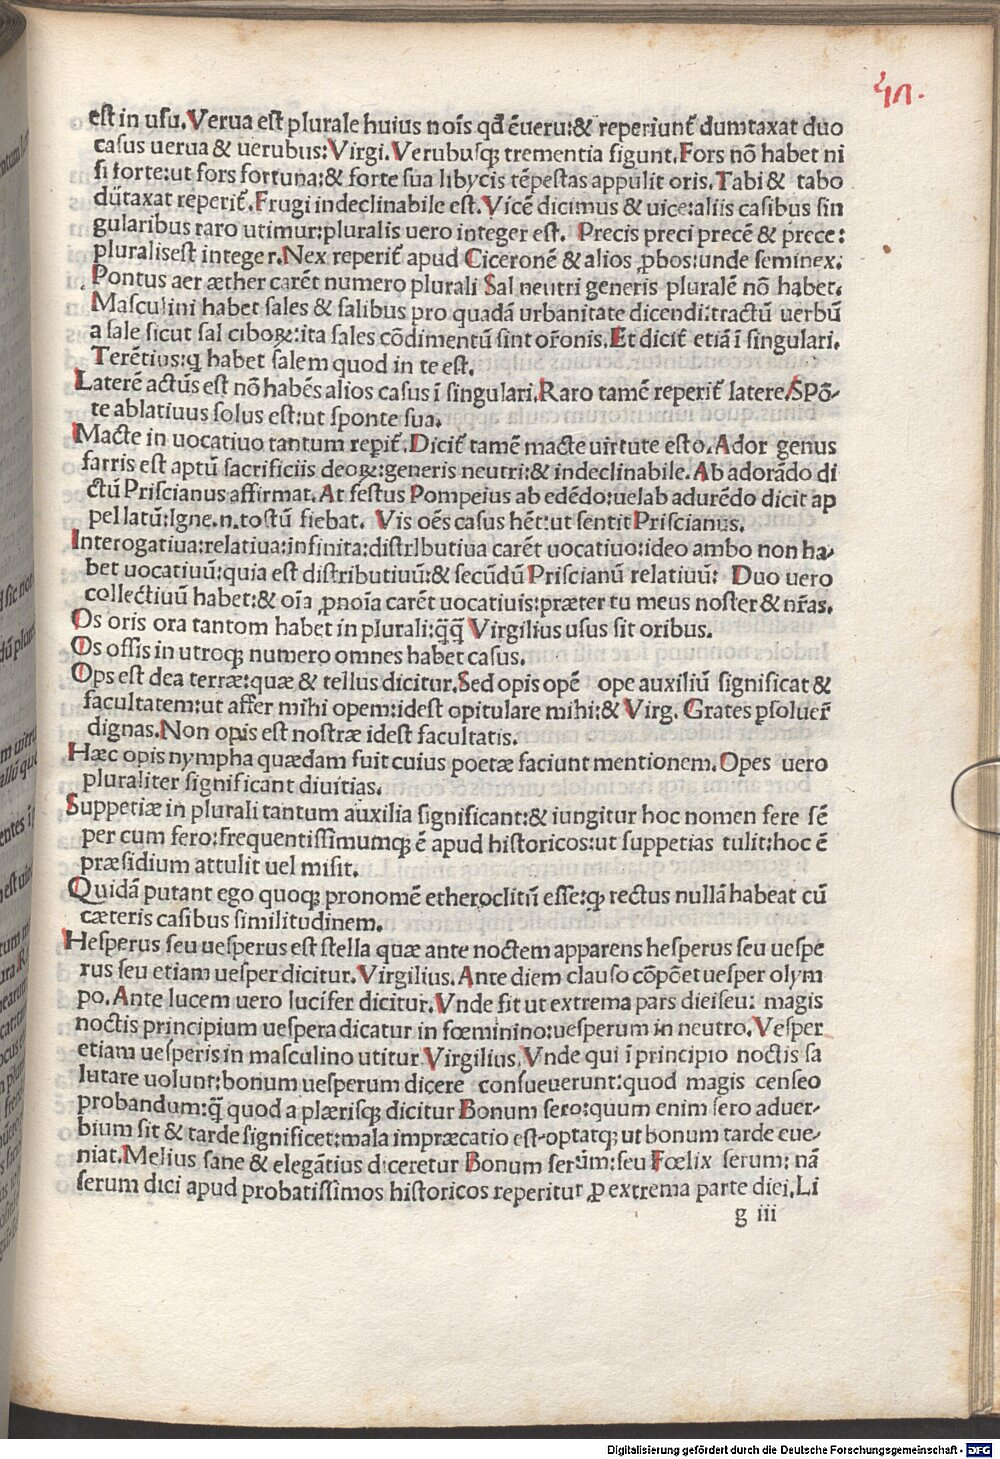 est in usu. Verua est plurale huius nois qđ ē ueru: & reperiunt̃ dumtaxat duo
casus uerua & uerubus: Virgi. Verubusq; trementia figunt. Fors nō habet ni
si forte: ut fors fortuna: & forte sua libycis tēpestas appulit oris. Tabi & tabo
dūtaxat reperit̃. Frugi indeclinabile est. Vicē dicimus & uice: aliis casibus sin
gularibus raro utimur: pluralis uero integer est. Precis preci precē & prece:
pluralis est integer. Nex reperit̃ apud Ciceronē & alios ꝓbos: unde seminex.
Pontus aer æther carēt numero plurali Sal neutri generis pluralē nō habet.
Masculini habet sales & salibus pro quadā urbanitate dicendi: tractū uerbū
a sale sicut sal ciboꝝ: ita sales cōdimentū sint or̃onis. Et dicit̃ etiā ī singulari.
Terētius: q habet salem quod in te est.
Laterē actūs est nō habēs alios casus ī singulari. Raro tamē reperit̃ latere/ Spō-
te ablatiuus solus est: ut sponte sua.
Macte in uocatiuo tantum repit̃. Dicit̃ tamē macte uirtute esto. Ador genus
farris est aptū sacrificiis deoꝝ: generis neutri: & indeclinabile. Ab adorādo di
ctū Priscianus affirmat. At festus Pompeius ab edēdo: uel ab adurēdo dicit ap
pellatū: Igne. n. tostū fiebat. Vis oēs casus hēt: ut sentit Priscianus.
Interogatiua: relatiua: infinita: distributiua carēt uocatiuo: ideo ambo non ha-
bet uocatiuū: quia est distributiuū: & secūdū Priscianū relatiuū: Duo uero
collectiuū habet: & oīa ꝓnoīa carēt uocatiuis: præter tu meus noster & nr̃as.
Os oris ora tantom habet in plurali: q̄q̄ Virgilius usus sit oribus.
Os ossis in utroq; numero omnes habet casus.
Ops est dea terræ: quæ & tellus dicitur. Sed opis opē ope auxiliū significat &
facultatem: ut affer mihi opem: idest opitulare mihi: & Virg. Grates psoluer̃
dignas. Non opis est nostræ idest facultatis.
Hæc opis nympha quædam fuit cuius poetæ faciunt mentionem. Opes uero
pluraliter significant diuitias.
Suppetiæ in plurali tantum auxilia significant: & iungitur hoc nomen fere sē
per cum fero: frequentissimumq; ē apud historicos: ut suppetias tulit: hoc ē
præsidium attulit uel misit.
Quidā putant ego quoq; pronomē etheroclitū esse: q; rectus nullā habeat cū
cæteris casibus similitudinem.
Hesperus seu uesperus est stella quæ ante noctem apparens hesperus seu uespe
rus seu etiam uesper dicitur. Virgilius. Ante diem clauso cōpōet uesper olym
po. Ante lucem uero lucifer dicitur. Vnde fit ut extrema pars diei seu: magis
noctis principium uespera dicatur in fœminino: uesperum in neutro. Vesper
etiam uesperis in masculino utitur Virgilius. Vnde qui ī principio noctis sa
lutare uolunt: bonum uesperum dicere consueuerunt: quod magis censeo
probandum: q̄ quod a plærisq; dicitur Bonum sero: quum enim sero aduer-
bium sit & tarde significet: mala impræcatio est-optatq; ut bonum tarde eue-
niat. Melius sane & elegātius diceretur Bonum serūm: seu Fœlix serum: nā
serum dici apud probatissimos historicos reperitur ꝓ extrema parte diei. Li
g iii
Digitalisierung gefördert durch die Deutsche Forschungsgemeinschaft - DFG